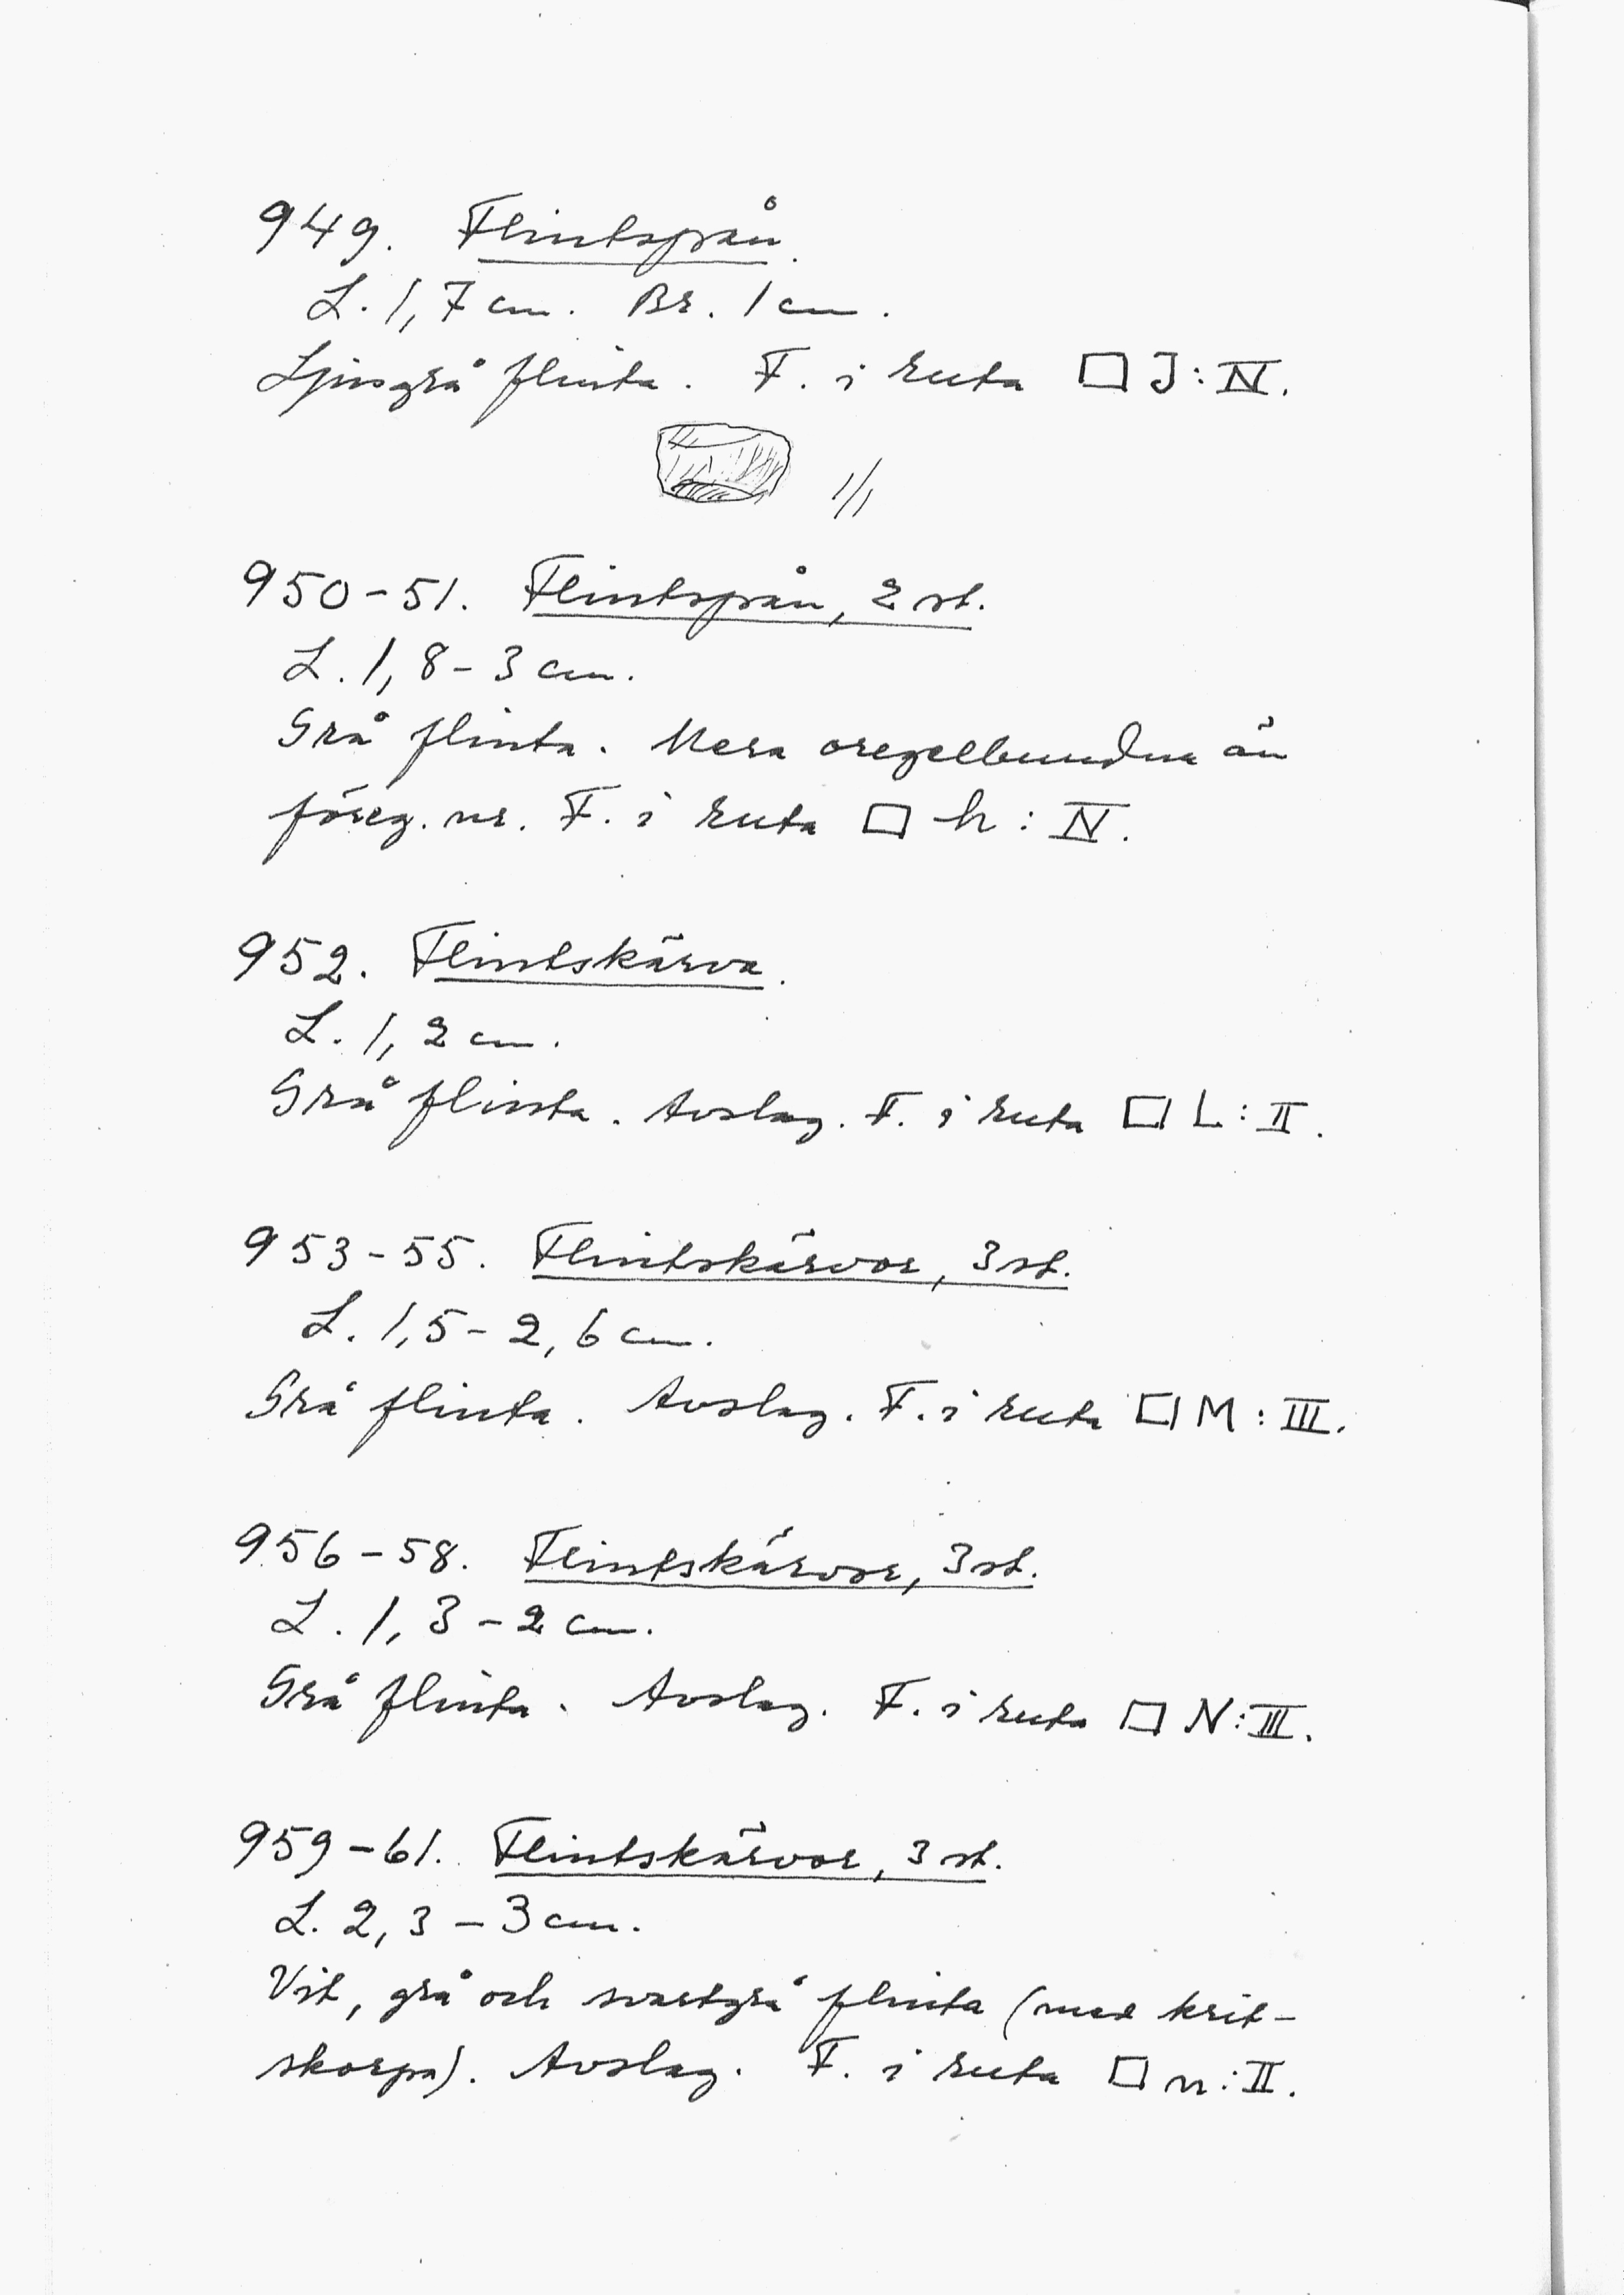 949. Flintspån.
L. 1,7 cm. Br. 1 cm.
Ljusgrå flinta. F. i ruta □ J:IV.
1/1
950-51. Flintspån, 2 st.
L. 1,8-3 cm.
Grå flinta. Mera oregelbundna än
föreg. nr. F. i ruta □ h:IV.
952. Flintskärva.
L. 1,2 cm.
Grå flinta. Avslag. F. i ruta □ L:II.
953-55. Flintskärvor, 3 st.
L. 1,5-2,6 cm.
Grå flinta. Avslag. F. i ruta □ M:III.
956-58. Flintskärvor, 3 st.
L. 1,3-2 cm.
Grå flinta. Avslag. F. i ruta □ N:III.
959-61. Flintskärvor, 3 st.
L. 2,3-3 cm.
Vit, grå och svartgrå flinta (med krit-
skorpa). Avslag. F. i ruta □ n:II.